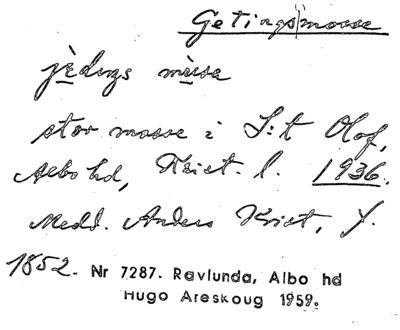 Getings|mosse
jèdıngs mòsse
stor mosse i S:t Olof,
Albo hd, Krist. l. 1936.
Medd. Anders Krist, f.
1852. Nr 7287. Ravlunda, Albo hd
Hugo Areskoug 1959.